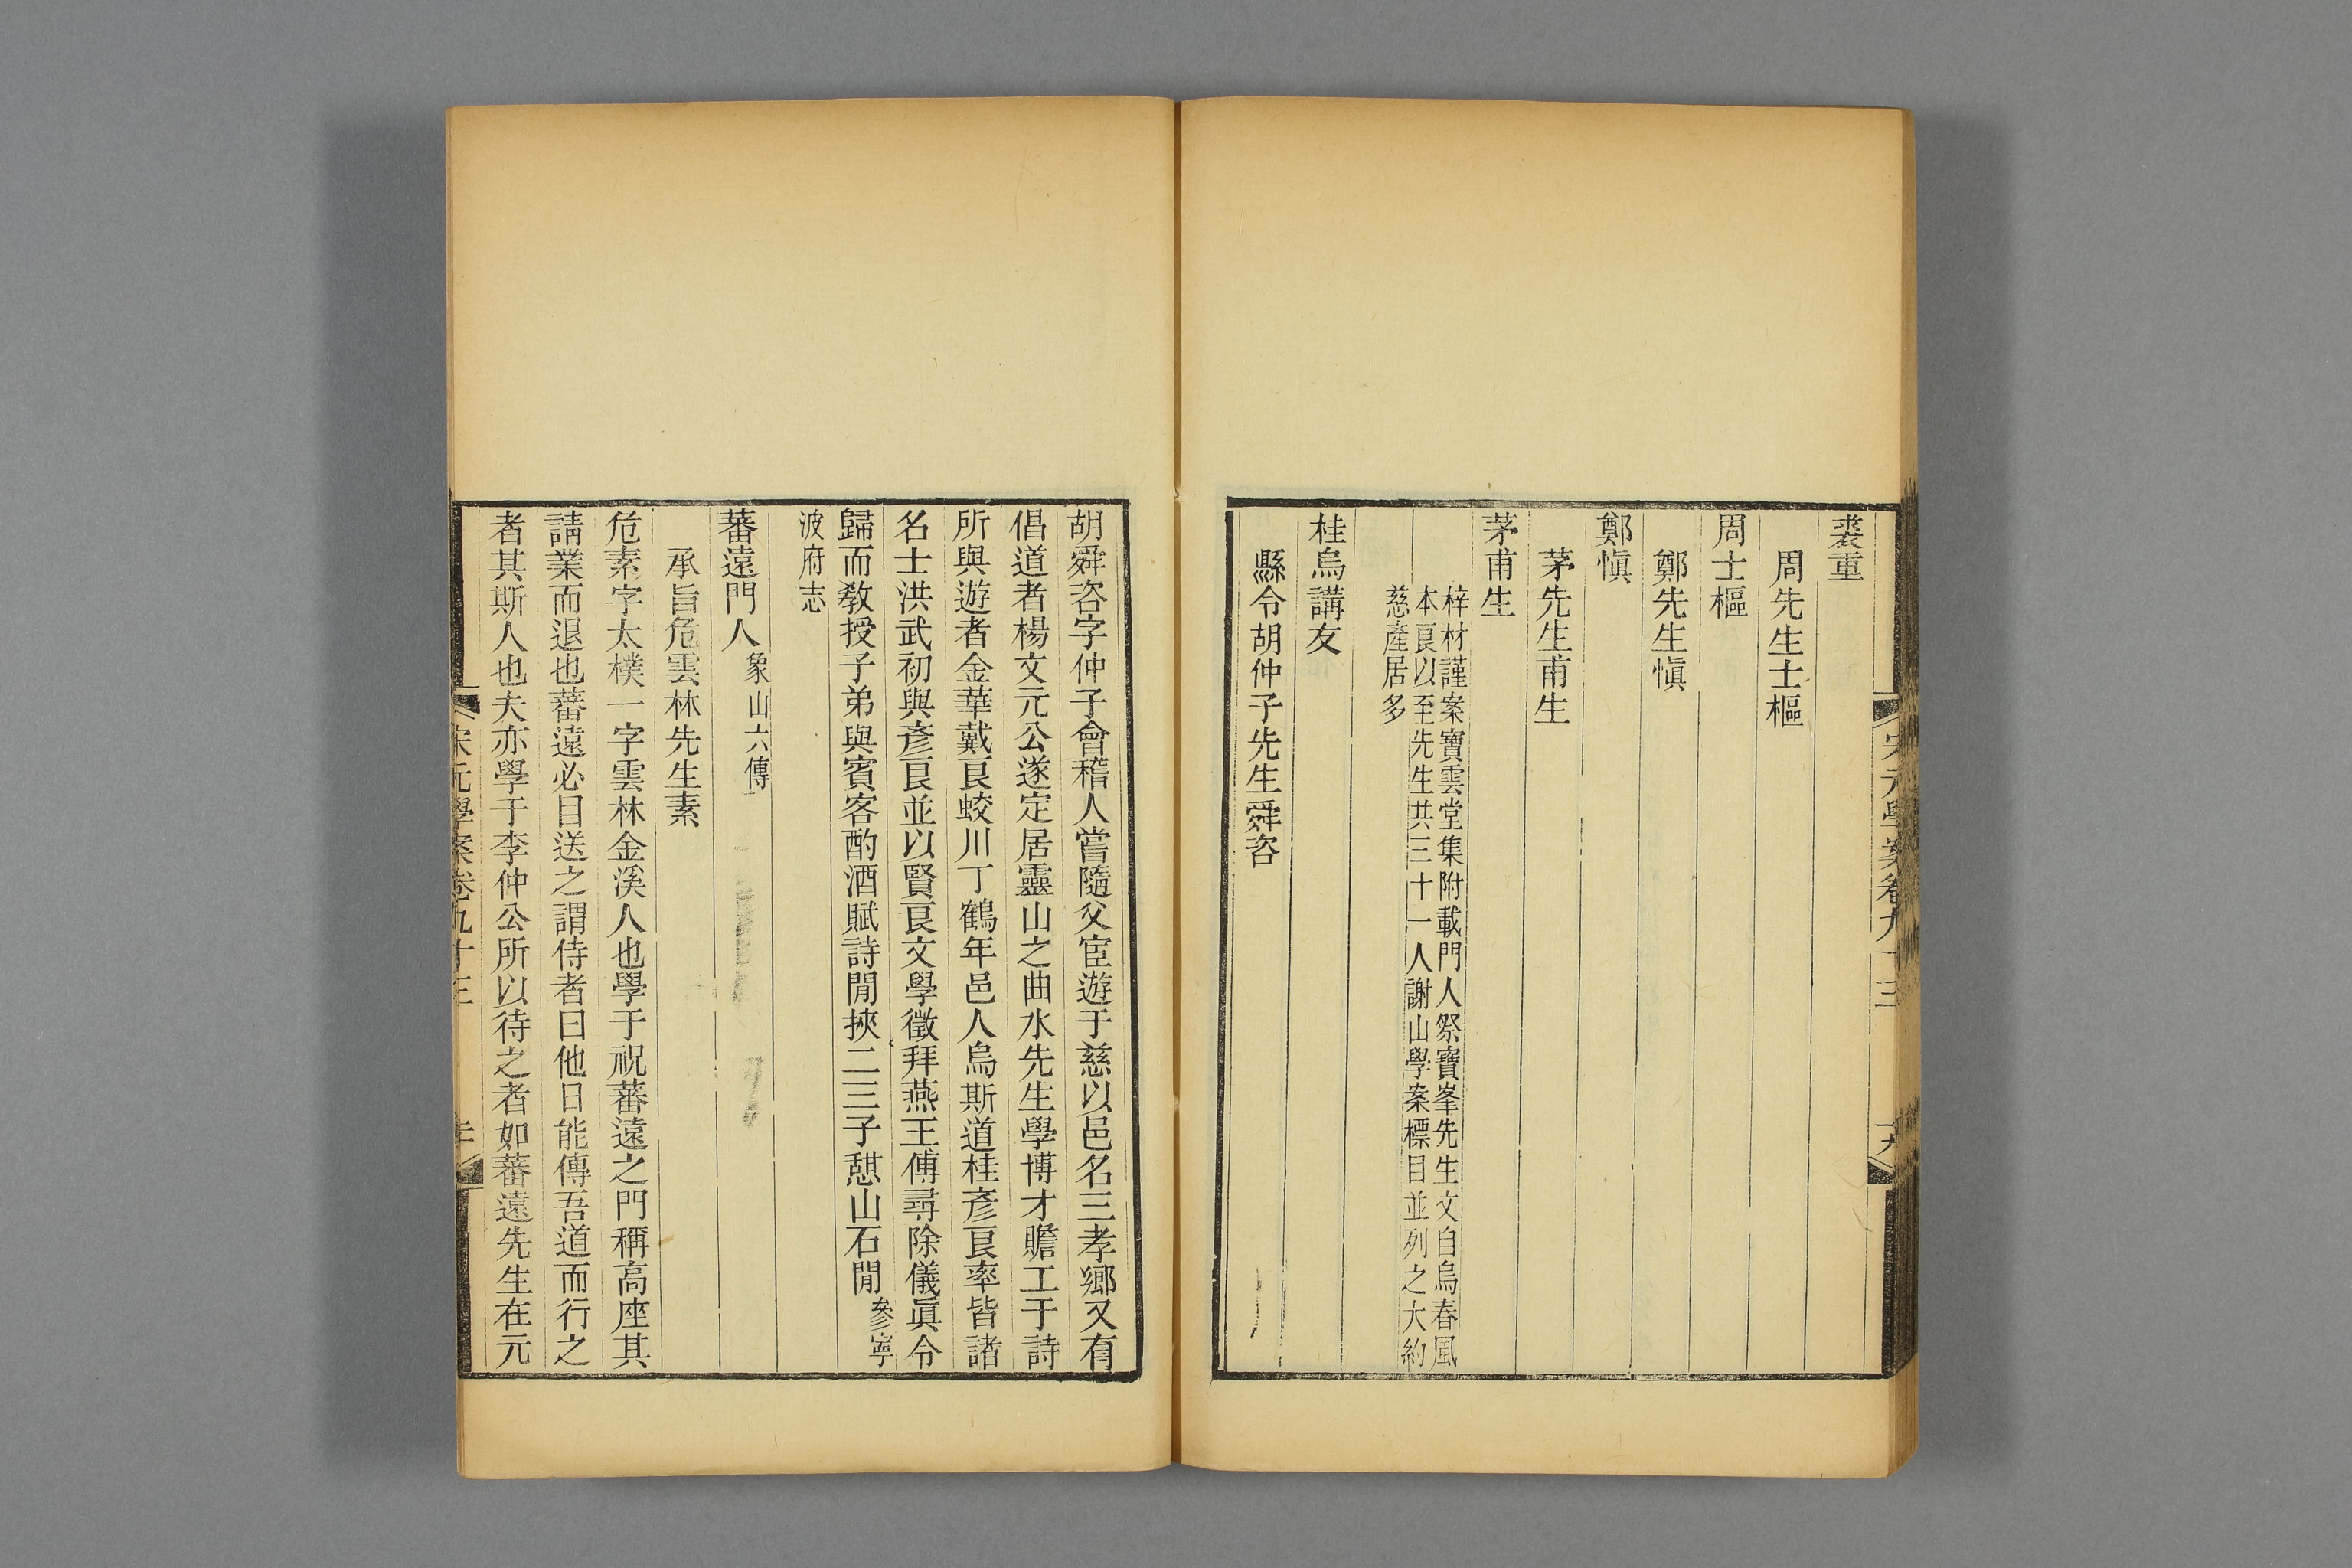 裘重
周先生士樞
周士樞
鄭先生愼
鄭愼
茅先生甫生
茅甫生
梓材謹案寶雲堂集附載門人祭寶峯先生文自烏春風
本良以至先生共三十一人謝山學案標目並列之大約
慈產居多
桂烏講友
縣令胡仲子先生舜咨
胡舜咨字仲子會稽人嘗隨父宦遊于慈以邑名三孝鄉又有
倡道者楊文元公遂定居靈山之曲水先生學博才贍工于詩
所與遊者金華戴良蛟川丁鶴年邑人烏斯道桂彥良率皆諸
名士洪武初與彥良並以賢良文學徵拜燕王傅尋除儀眞令
歸而敎授子弟與賓客酌酒賦詩閒挾二三子憇山石閒參寧
波府志
蕃遠門人象山六傳
承旨危雲林先生素
危素字太樸一字雲林金溪人也學于祝蕃遠之門稱高座其
請業而退也蕃遠必目送之謂侍者曰他日能傳吾道而行之
者其斯人也夫亦學于李仲公所以待之者如蕃遠先生在元
宋元學案卷九十三